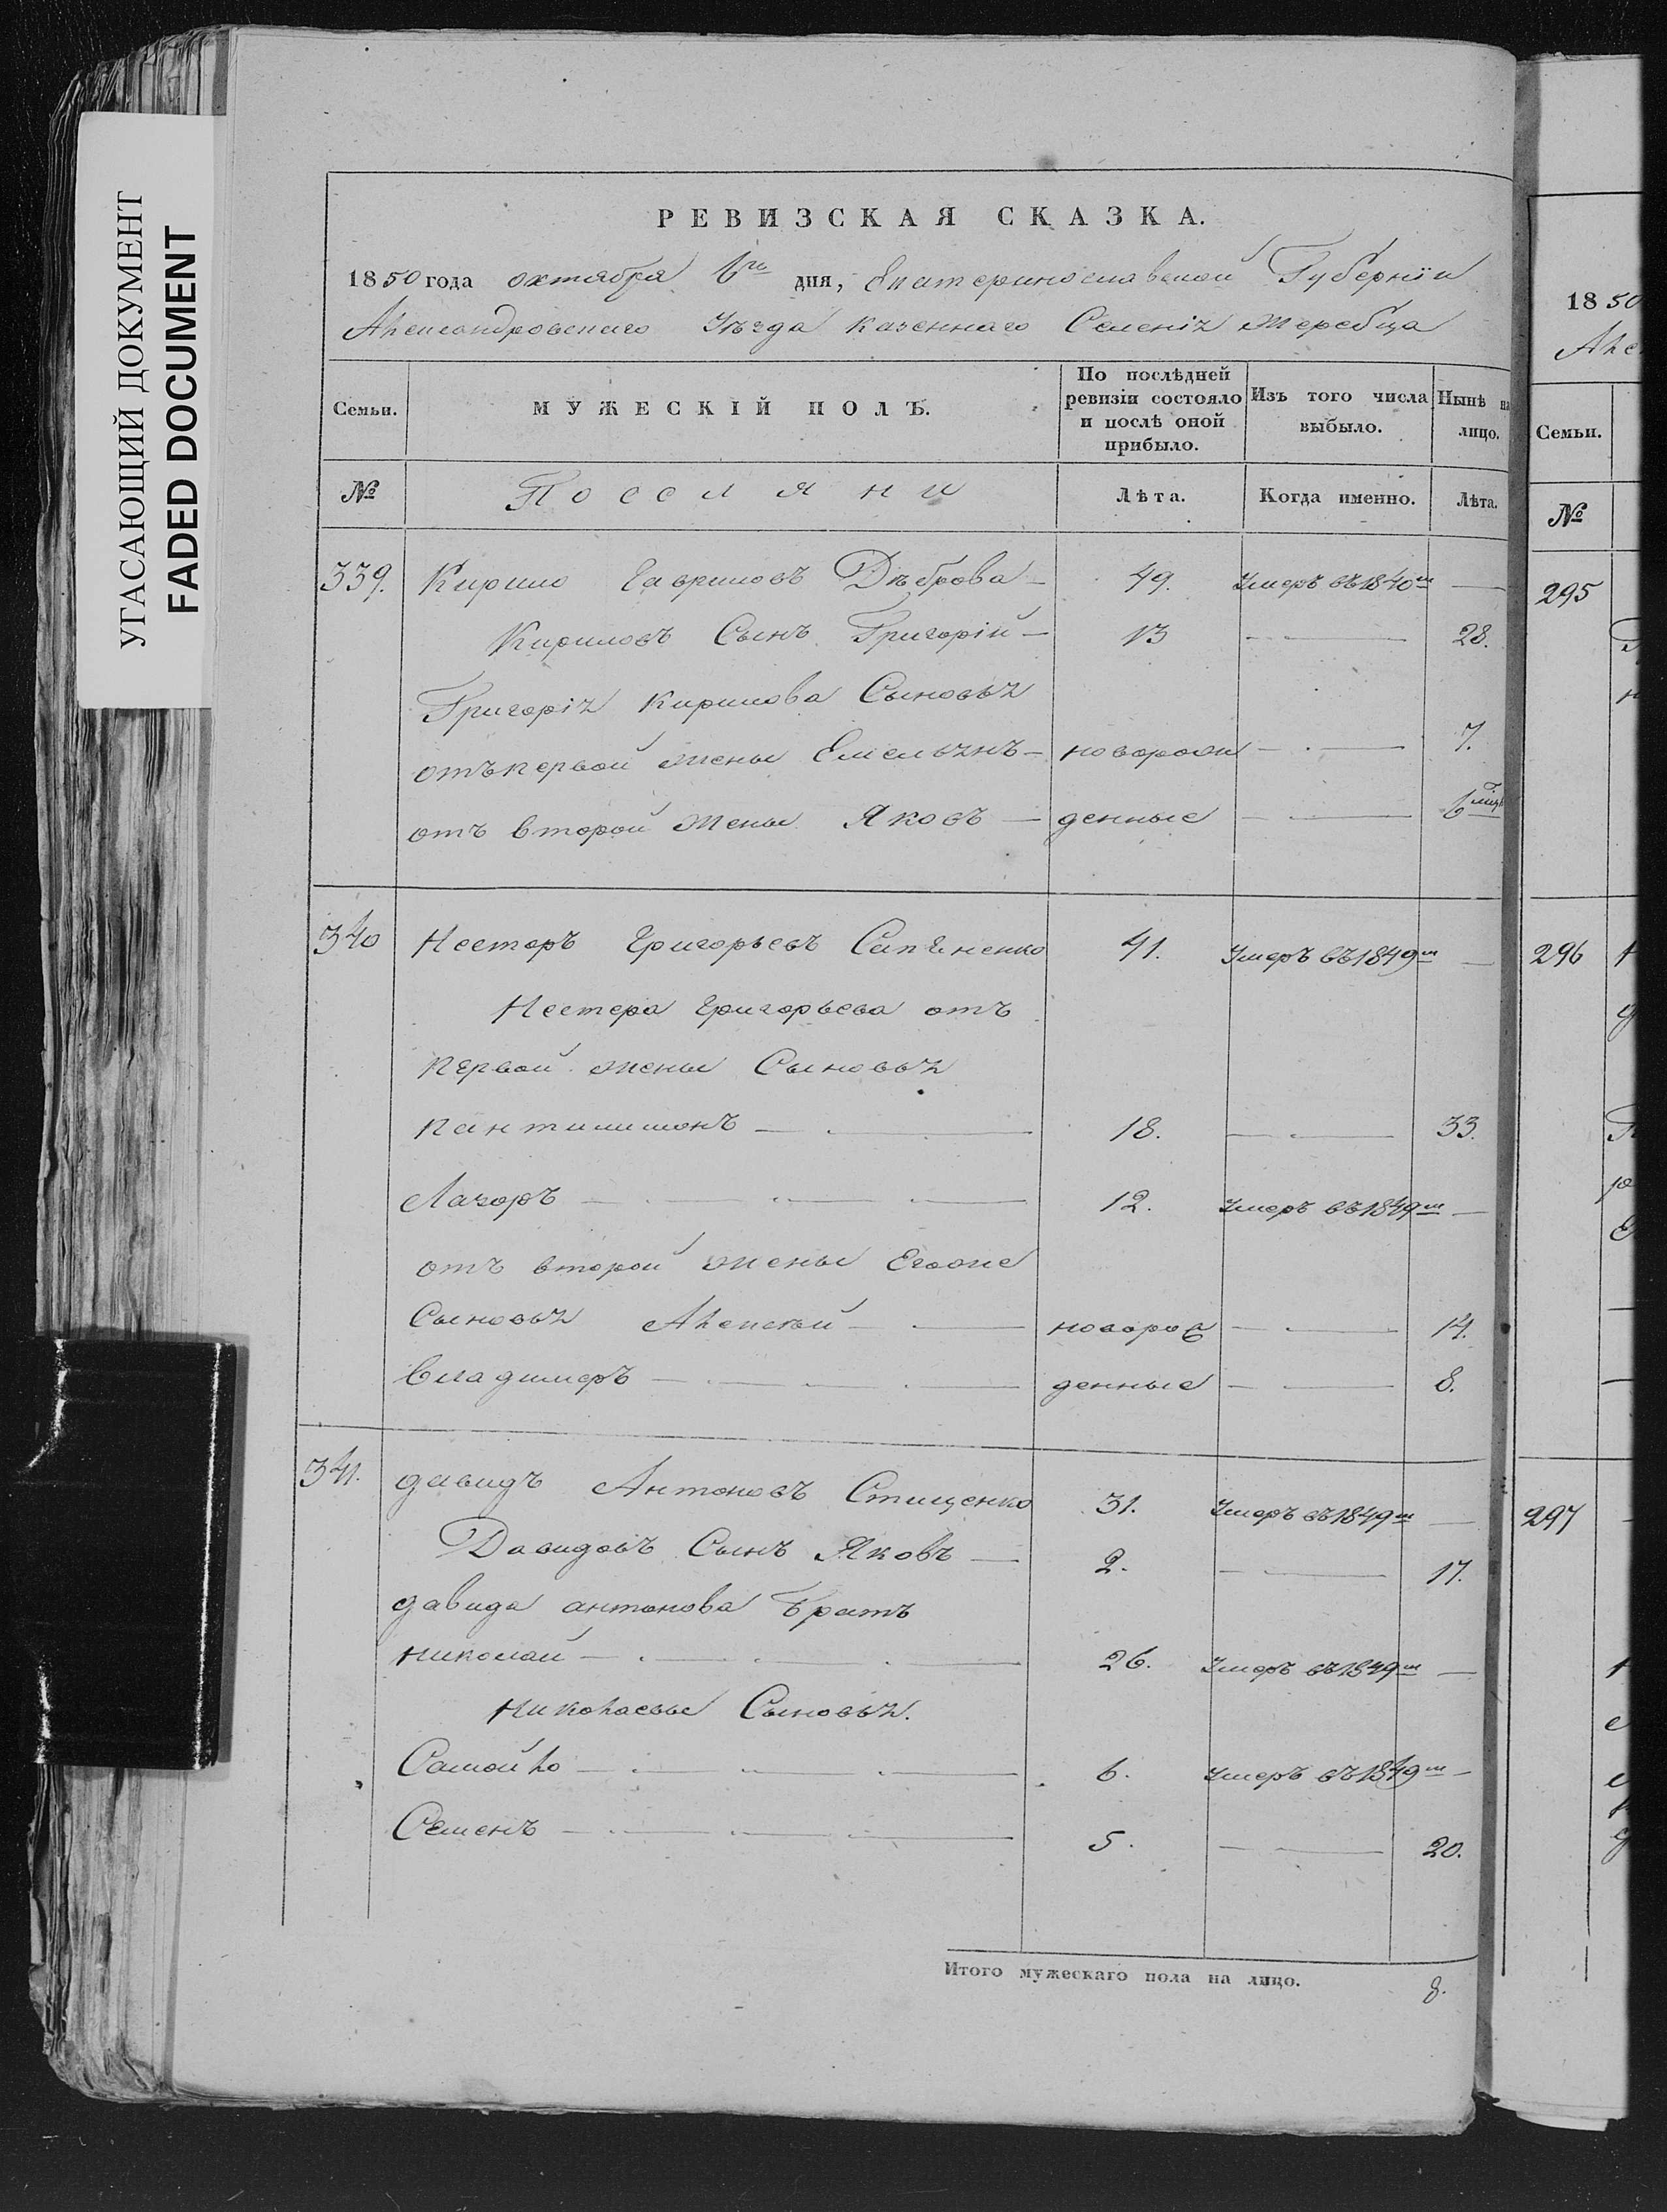 УГАСАЮЩИЙ ДОКУМЕНТ
FADED DOCUMENT
РЕВИЗСКАЯ СКАЗКА.
1850 года октября 6го дня, Екатеринославской Губерніи
Александровскаго Уѣзда казеннаго Селенія Жеребца
Семьи. МУЖЕСКІЙ ПОЛЪ. По послѣдней ревизіи состояло и послѣ оной прибыло. Изъ того числа выбыло. Нынѣ на лицо.
№ Посселяни Лѣта. Когда именно. Лѣта.
339. Кирило Гавриловъ Дѣброва 49. Умеръ въ 1840м —
Кириловъ Сынъ Григорій — 13 — 28.
Григорія Кирилова Сыновья
отъ первой жены Емельянъ — новорож — 7.
отъ второй жены Яковъ — денные — 6 мѣс
340 Несторъ Григорьевъ 41. Умеръ въ 1849м —
Нестера Григорьева отъ
первой жены Сыновья
Пантилимонъ — 18. — 33.
Лазоръ — 12. Умеръ въ 1849м —
отъ второй жены Егоже
Сыновья Алексѣй — новорож — 14.
Владимеръ — денные — 8.
341. Давидъ Антоновъ Стищенко 31. Умеръ въ 1849м —
Давидовъ Сынъ Яковъ — 2. — 17.
давида антонова Братъ
Николай — 26. Умеръ въ 1849м —
Николаевы Сыновья.
Самойло — 6. Умеръ въ 1849м —
Семенъ — 5. — 20.
Итого мужескаго пола на лицо. 8.
18 50
Але
Семьи.
№
295
296
297